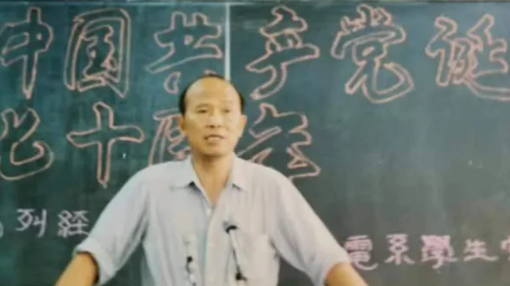 中国共产党诞
七十周年
列經
電系學生